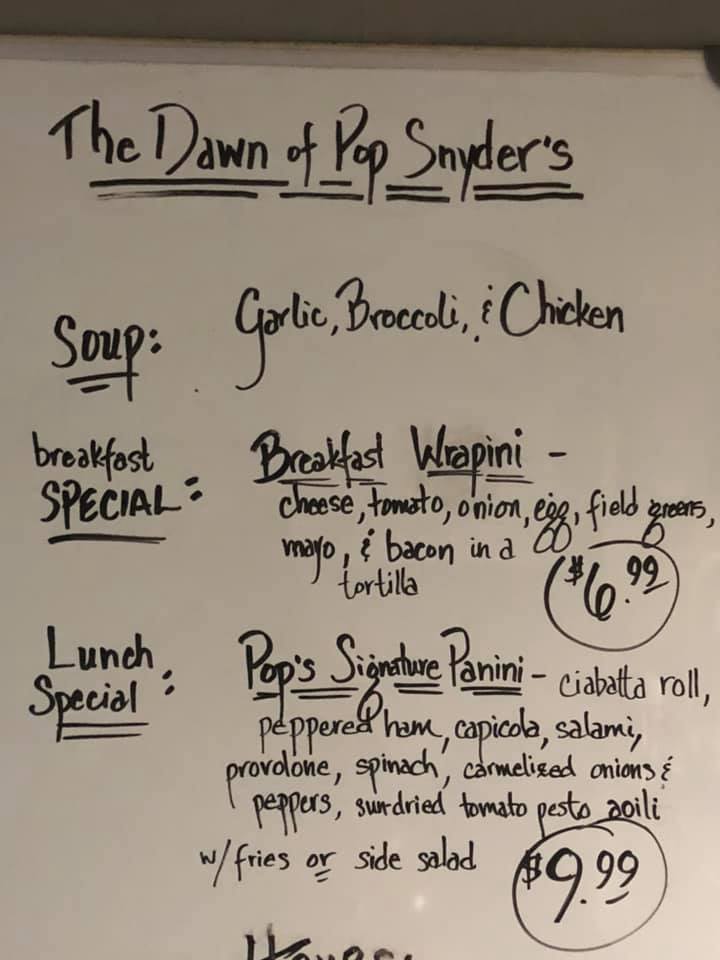 The Dawn of Pop Snyder's
Soup: Garlic, Broccoli, & Chicken
breakfast
SPECIAL: Breakfast Wrapini -
cheese, tomato, onion, egg, field greens,
mayo, & bacon in a
tortilla
$6.99
Lunch
Special: Pop's Signature Panini - ciabatta roll,
peppered ham, capicola, salami,
provolone, spinach, carmelized onions &
peppers, sun-dried tomato pesto aoili
w/fries or side salad
$9.99